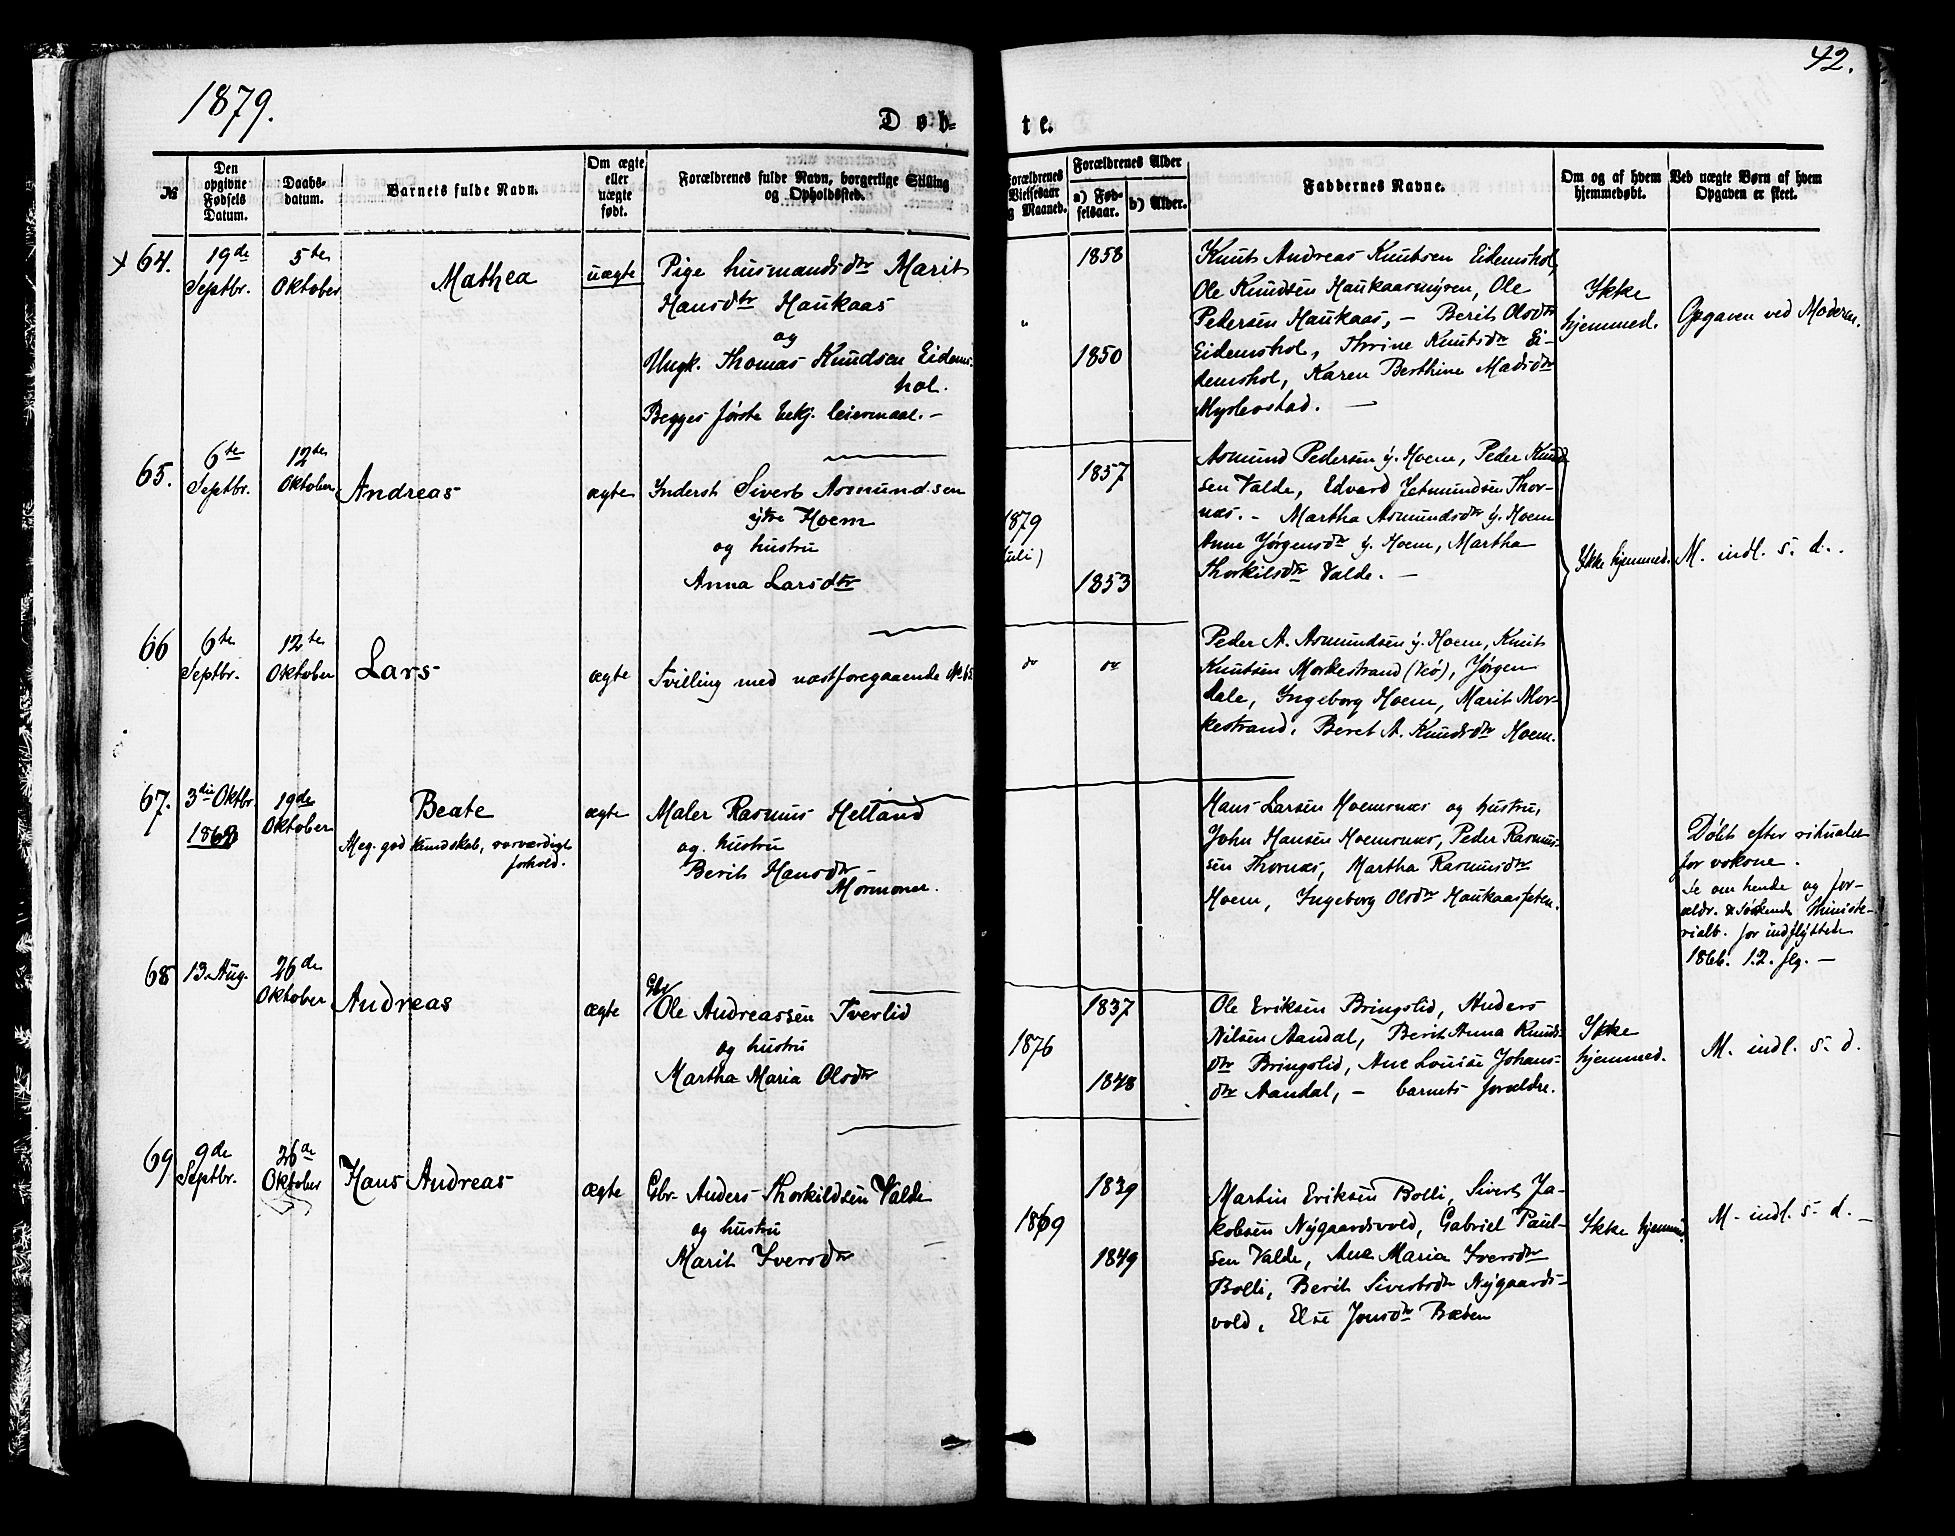 1879.
42.
Døb-
te.
№
Den
opgivne
Fødsels
Datum.
Daabs-
datum.
Barnets fulde Navn.
Om ægte
eller
uægte
født.
Forældrenes fulde Navn, borgerlige Stilling
og Opholdssted.
Forældrenes
Vielsesaar
og Maaned.
Forældrenes Alder
a) Fød-
selsaar.
b) Alder.
Faddernes Navne.
Om og af hvem
hjemmedøbt.
Ved uægte Børn af hvem
Opgaven er skeet.
64.
19de
Septbr.
5te
Oktober
Mathea
uægte
Pige husmandsdtr Marit
Hansdtr Haukaas
og
Ungk. Thomas Knudsen Eidems-
hol.
Begges første bekj. leiermaal. -
"
1858
1850
Knut Andreas Knutsen Eidemshol,
Ole Knudsen Haukaasmyren, Ole
Pedersen Haukaas, - Berit Olsdtr
Eidemshol, Thrine Knutsdtr Ei-
demshol, Karen Berthine Madsdtr
Myrbostad. -
Ikke
hjemmed.
Opgaven ved Moderen.
65.
6te
Septbr.
12te
Oktober
Andreas
ægte
Inderst Sivert Asmundsen
ytre Hoem
og hustru
Anna Larsdtr
1879
(Juli)
1857
1853
Asmund Pedersen y. Hoem, Peder Knud-
sen Valde, Edvard Jetmundsen Thor-
næs. - Martha Asmundsdtr y. Hoem
Anne Jørgensdtr y. Hoem, Martha
Thorkilsdtr Valde. -
Ikke hjemmed.
M. indl. s. d.
66
6te
Septbr.
12te
Oktober
Lars
ægte
Tvilling med næstforegaaende No 65
do
do
Peder A. Asmundsen y. Hoem, Knut
Knutsen Morkestrand (Veø), Jørgen
Dale, Ingeborg Hoem, Marit Mor-
kestrand, Beret A. Knudsdtr Hoem.
67.
3die Oktbr.
1868
19de
Oktober
Beate
Meg. god kundskab, værdigt
forhold.
ægte
Maler Rasmus Helland
og hustru
Berit Hansdtr -
Mormoner.
Hans Larsen Hoemsnæs og hustru,
John Hansen Hoemsnæs, Peder Rasmus-
sen Thornæs, Martha Rasmusdtr
Hoem, Ingeborg Olsdtr Haukaasfeten.
Døbt efter ritualet
for voksne.
Se om hende og for-
ældr. & Søskende Ministe-
rialb. for indflyttede
1866. 1.2. flg. -
68
13. Aug.
26de
Oktober
Andreas
ægte
Gbr
Ole Andreassen Tverlid
og hustru
Martha Maria Olsdtr
1876
1837
1848
Ole Eriksen Bringslid, Anders
Nilsen Aandal, Berit Anna Knuds-
dtr Bringslid, Ane Louise Johans-
dtr Aandal, - barnets forældre.
Ikke
hjemmed.
M. indl. s. d.
69
9de
Septbr.
26de
Oktober
Hans Andreas
ægte
Gbr. Anders Thorkildsen Valde
og hustru
Marit Iversdtr
1869
1839
1849
Martin Eriksen Bolli, Sivert Ja-
kobsen Nygaardsvold, Gabriel Paul-
sen Valde, Ane Maria Iversdtr
Bolli, Berit Sivertsdtr Nygaards-
vold, Else Jonsdtr
Ikke hjemmed.
M. indl. s. d. -